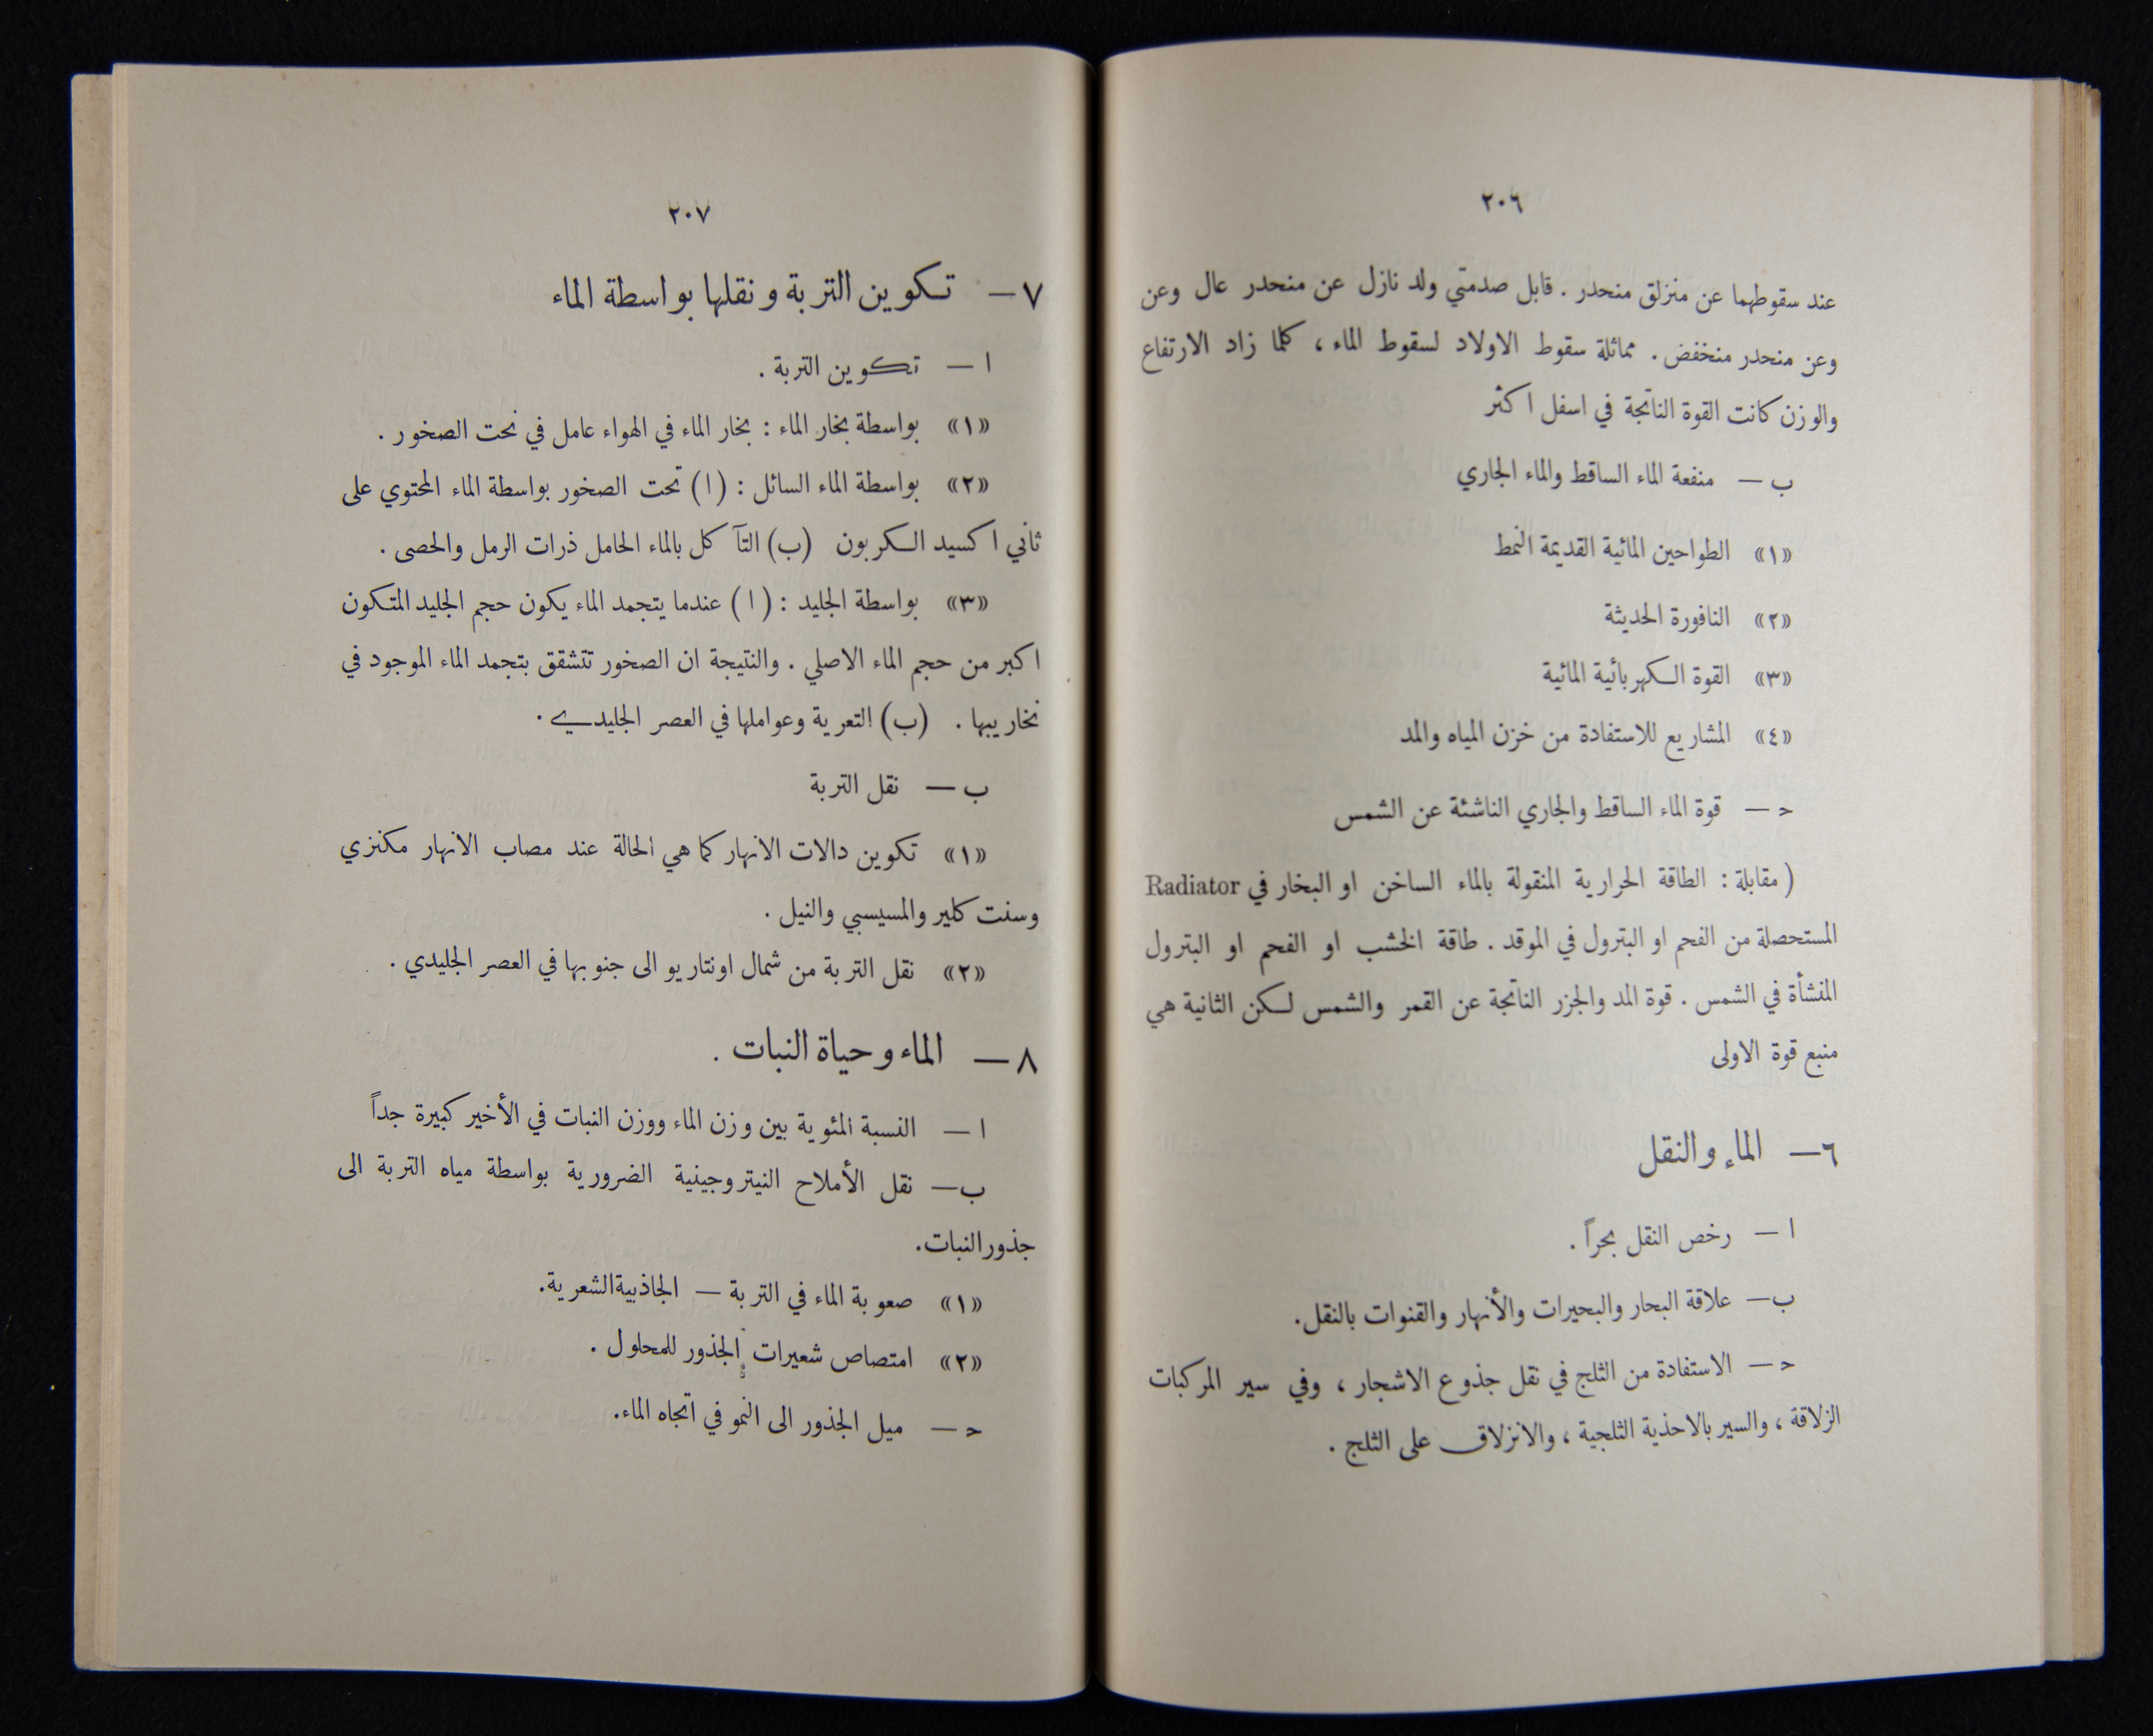 ٢٠٦
عند سقوطهما عن منزلق منحدر . قابل صدمتي ولد نازل عن منحدر عال وعن
وعن منحدر منخفض . مماثلة سقوط الاولاد لسقوط الماء ، كلما زاد الارتفاع
والوزن كانت القوة الناتجة في اسفل اكثر
ب — منفعة الماء الساقط والماء الجاري
«١» الطواحين المائية القديمة النمط
«٢» النافورة الحديثة
«٣» القوة الكهربائية المائية
«٤» المشاريع للاستفادة من خزن المياه والمد
ﺣ — قوة الماء الساقط والجاري الناشئة عن الشمس
( مقابلة : الطاقة الحرارية المنقولة بالماء الساخن او البخار في Radiator
المستحصلة من الفحم او البترول في الموقد . طاقة الخشب او الفحم او البترول
المنشأة في الشمس . قوة المد والجزر الناتجة عن القمر والشمس لكن الثانية هي
منبع قوة الاولى
٦ — الماء والنقل
ا — رخص النقل بحراً .
ب — علاقة البحار والبحيرات والأنهار والقنوات بالنقل.
ﺣ — الاستفادة من الثلج في نقل جذوع الاشجار ، وفي سير المركبات
الزلاقة ، والسير بالاحذية الثلجية ، والانزلاق على الثلج .
٢٠٧
٧ — تكوين التربة ونقلها بواسطة الماء
ا — تكوين التربة .
«١» بواسطة بخار الماء : بخار الماء في الهواء عامل في نحت الصخور .
«٢» بواسطة الماء السائل : (ا) نحت الصخور بواسطة الماء المحتوي على
ثاني اكسيد الكربون (ب) التآكل بالماء الحامل ذرات الرمل والحصى .
«٣» بواسطة الجليد : (ا) عندما يتجمد الماء يكون حجم الجليد المتكون
اكبر من حجم الماء الاصلي . والنتيجة ان الصخور تتشقق بتجمد الماء الموجود في
نخاريبها . (ب) التعرية وعواملها في العصر الجليدي .
ب — نقل التربة
«١» تكوين دالات الانهار كما هي الحالة عند مصاب الانهار مكنزي
وسنت كلير والمسيسبي والنيل .
«٢» نقل التربة من شمال اونتاريو الى جنوبها في العصر الجليدي .
٨ — الماء وحياة النبات .
ا — النسبة المئوية بين وزن الماء ووزن النبات في الأخير كبيرة جداً
ب — نقل الأملاح النيتروجينية الضرورية بواسطة مياه التربة الى
جذور النبات.
«١» صعوبة الماء في التربة — الجاذبية الشعرية.
«٢» امتصاص شعيرات الجذور للمحلول .
ﺣ — ميل الجذور الى النمو في اتجاه الماء.